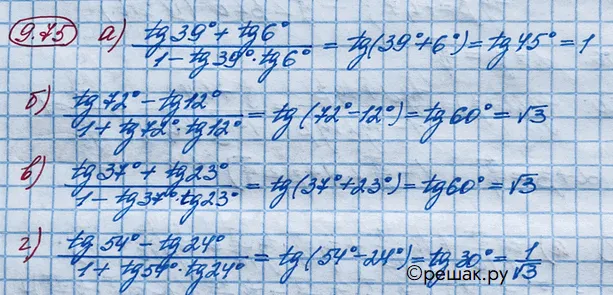 9.75 а) (tg 39° + tg 6°) / (1 - tg 39° · tg 6°) = tg(39° + 6°) = tg 45° = 1
б) (tg 72° - tg 12°) / (1 + tg 72° · tg 12°) = tg(72° - 12°) = tg 60° = √3
в) (tg 37° + tg 23°) / (1 - tg 37° · tg 23°) = tg(37° + 23°) = tg 60° = √3
г) (tg 54° - tg 24°) / (1 + tg 54° · tg 24°) = tg(54° - 24°) = tg 30° = 1/√3
©решак.ру